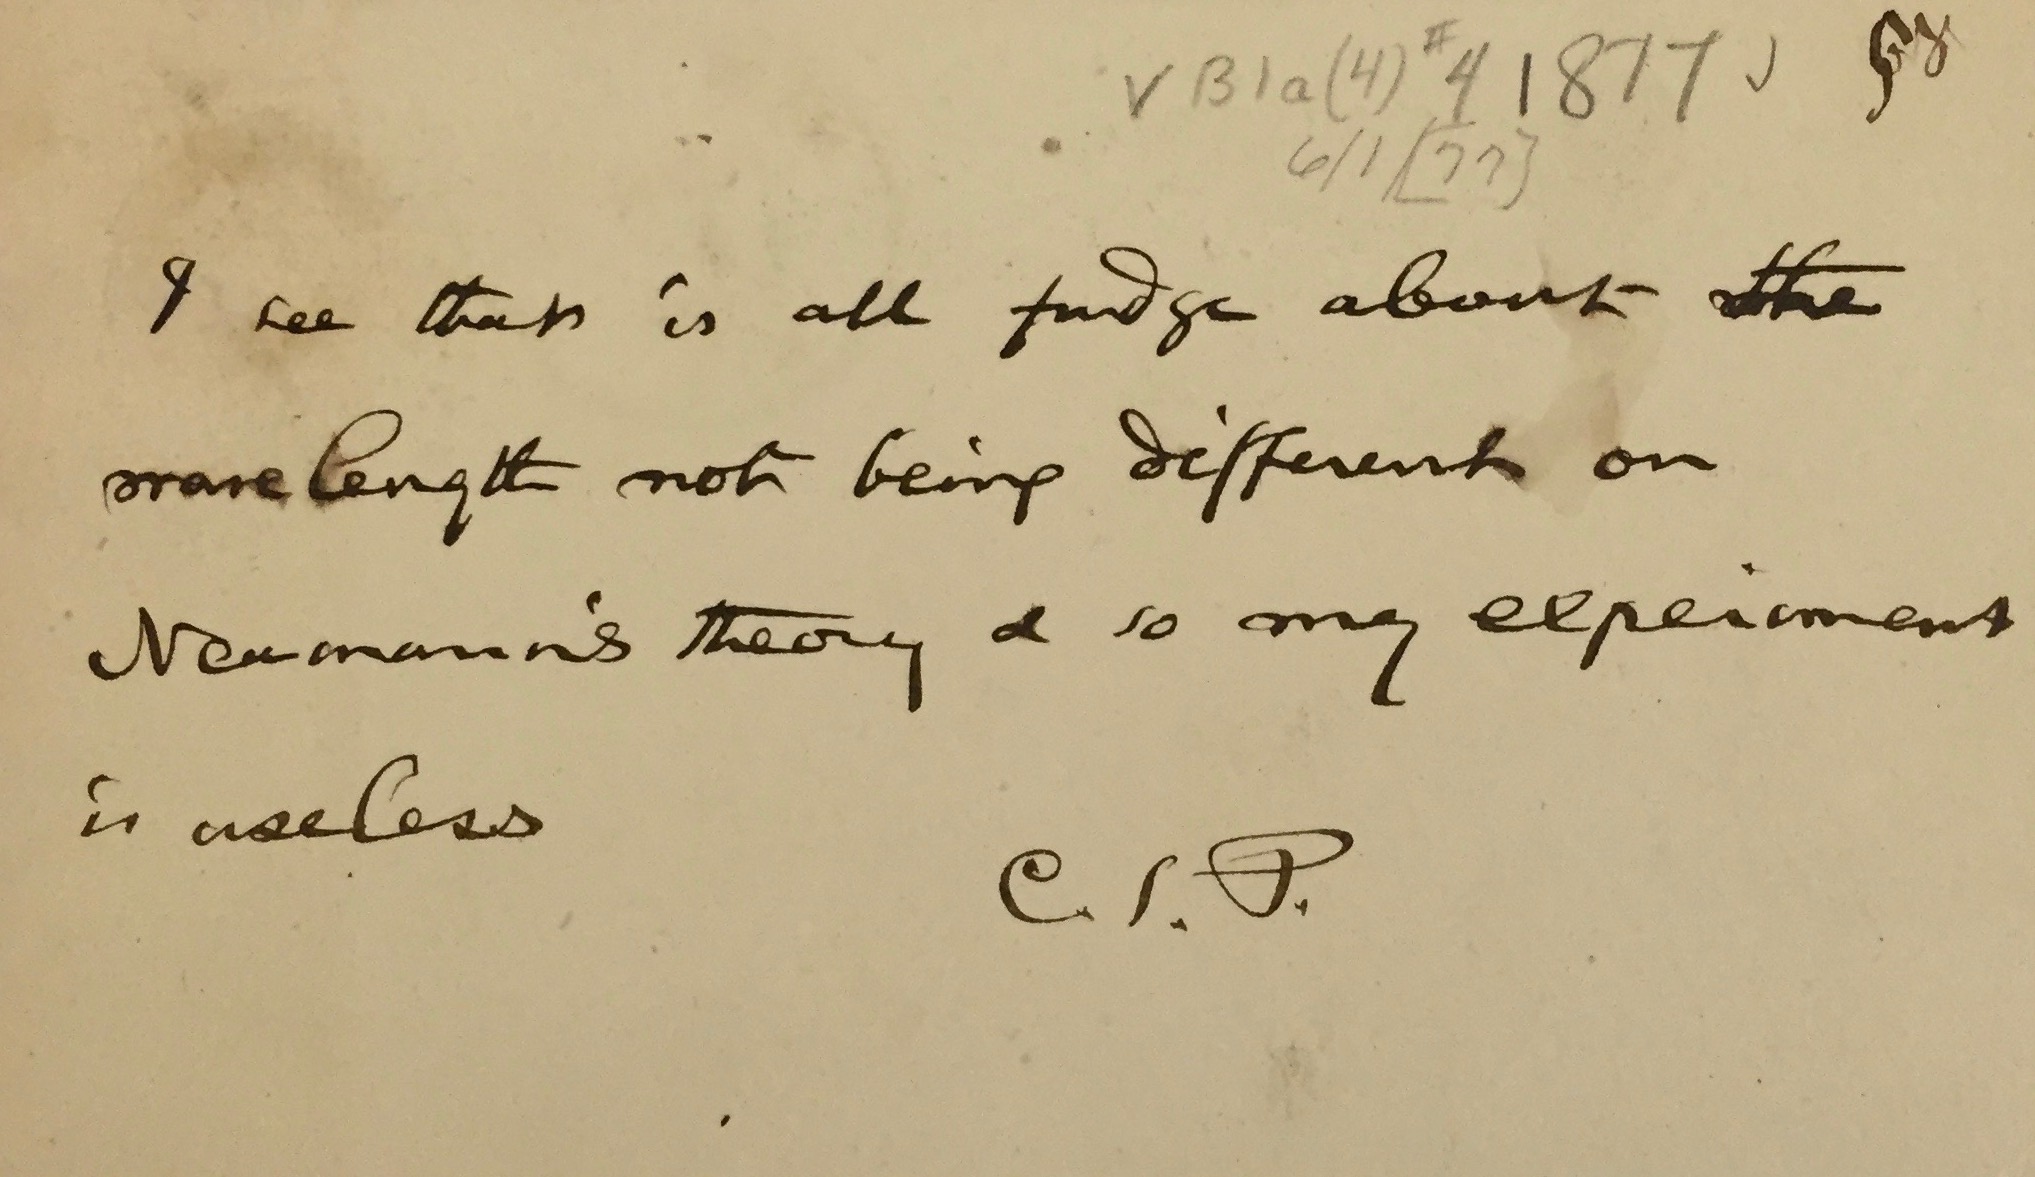 V B1a(4) #4 1877
6/1/[77]
I see that is all fudge about the
wave length not being different on
Neumann's theory & so my expeiment
is useless
C. S. P.